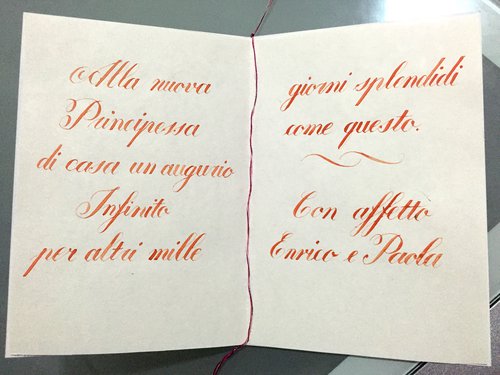 Alla nuova
Principessa
di casa un augurio
Infinito
per altri mille
giorni splendidi
come questo.
Con affetto
Enrico e Paola